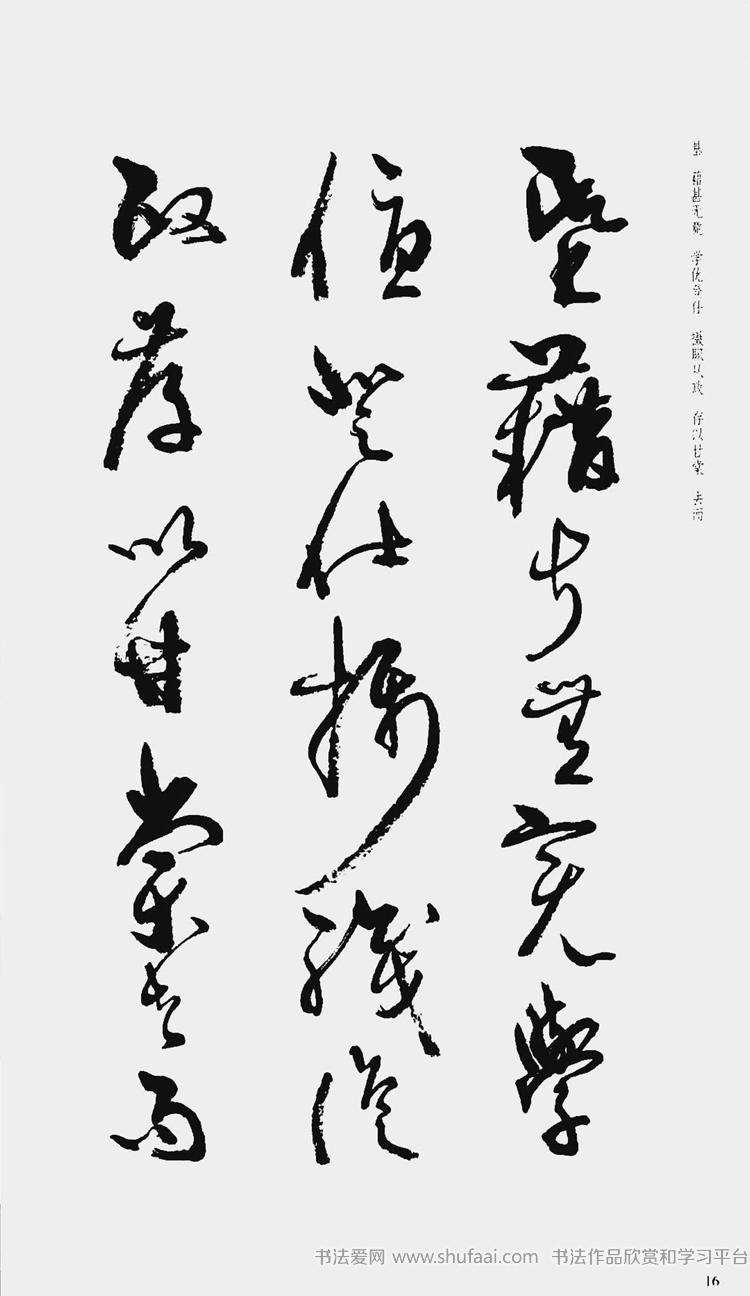 基 藉甚无竟 学优登仕 摄职从政 存以甘棠 去而
基藉甚無竟學
優登仕攝職從
政存以甘棠去而
书法爱网 www.shufaai.com 书法作品欣赏和学习平台
16